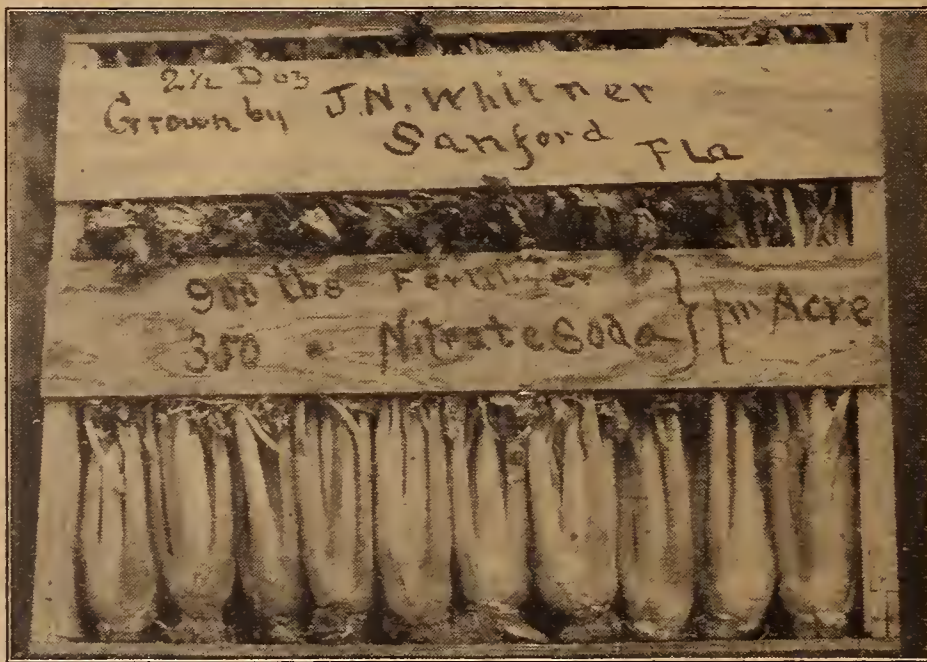 2½ Doz
Grown by J.N. Whitner
Sanford Fla
900 lbs Fertilizer
350 " Nitrate Soda } Acre